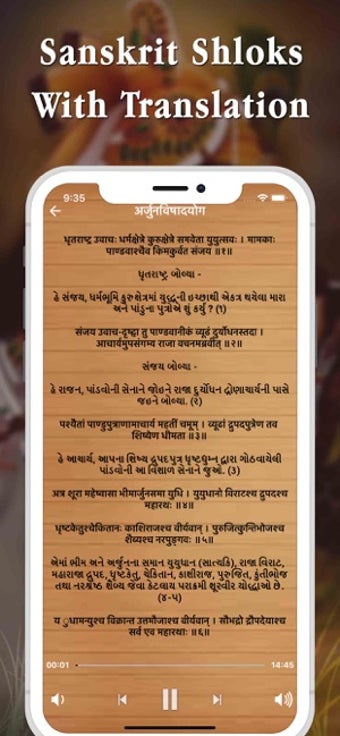 Sanskrit Shloks
With Translation
9:35
अर्जुनविषादयोग
धृतराष्ट्र उवाचः धर्मक्षेत्रे कुरुक्षेत्रे समवेता युयुत्सवः । मामकाः
पाण्डवाश्चैव किमकुर्वत संजय ॥१॥
ધૃતરાષ્ટ્ર બોલ્યા -
હે સંજય, ધર્મભૂમિ કુરુક્ષેત્રમાં યુદ્ધની ઇચ્છાથી એકત્ર થયેલા મારા
અને પાંડુના પુત્રોએ શું કર્યુ ? (૧)
संजय उवाच-दृष्ट्वा तु पाण्डवानीकं व्यूढं दुर्योधनस्तदा ।
आचार्यमुपसंगम्य राजा वचनमब्रवीत् ॥२॥
સંજય બોલ્યા -
હે રાજન, પાંડવોની સેનાને જોઇને રાજા દુર્યોધન દ્રોણાચાર્યની પાસે
જઇને બોલ્યા. (૨)
पश्यैतां पाण्डुपुत्राणामाचार्य महतीं चमूम् । व्यूढां द्रुपदपुत्रेण तव
शिष्येण धीमता ॥३॥
હે આચાર્ય, આપના શિષ્ય દ્રુપદપુત્ર ધૃષ્ટધુમ્ન દ્વારા ગોઠવાયેલી
પાંડવોની આ વિશાળ સેનાને જુઓ. (3)
अत्र शूरा महेष्वासा भीमार्जुनसमा युधि । युयुधानो विराटश्च द्रुपदश्च
महारथः ॥४॥
धृष्टकेतुश्चेकितानः काशिराजश्च वीर्यवान् । पुरुजित्कुन्तिभोजश्च
शैब्यश्च नरपुङ्गवः ॥५॥
એમાં ભીમ અને અર્જુનના સમાન યુયુધાન (સાત્યકિ), રાજા વિરાટ,
મહારાજા દ્રુપદ, ધૃષ્ટકેતુ, ચેકિતાન, કાશીરાજ, પુરુજિત, કુંતીભોજ
તથા નરશ્રેષ્ઠ શૈબ્ય જેવા કેટલાય પરાક્રમી શૂરવીર યોદ્ધાઓ છે.
(૪-૫)
य ुधामन्युश्च विक्रान्त उत्तमौजाश्च वीर्यवान् । सौभद्रो द्रौपदेयाश्च
सर्व एव महारथाः ॥६॥
00:01 14:45